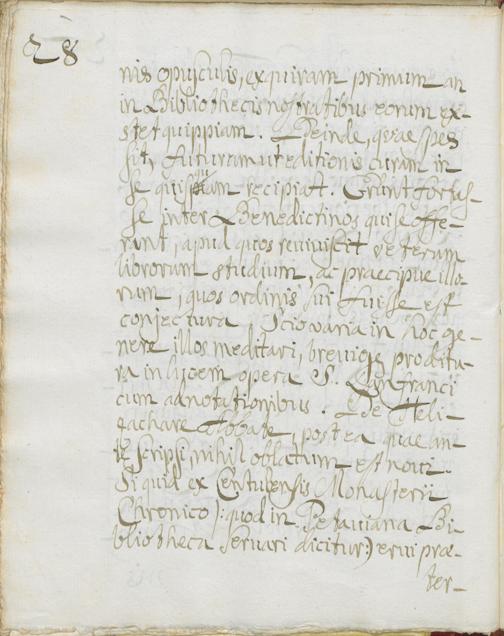 28
nis opusculis, exquiram primum an
in Bibliothecis nostratibus eorum ex-
stet quippiam. Deinde, quae spes
sit, futurum ut editionis curam in
se quispiam recipiat. Erunt fortas-
se inter Benedictinos qui se offe-
rant, apud quos reviviscit veterum
librorum studium, ac praecipue illo-
rum, quos ordinis sui fuisse est
conjectura. Scio varia in hoc ge-
nere illos meditari, brevique proditu-
ra in lucem opera S. Lanfranci
cum adnotationibus. De Heli-
gachare Abbate, postea quae an-
te scripsi, nihil oblatum est novi.
Si quid ex Centulensis Monasterii
Chronico (: quod in Petaviana Bi-
bliotheca servari dicitur:) erui prae-
ter-